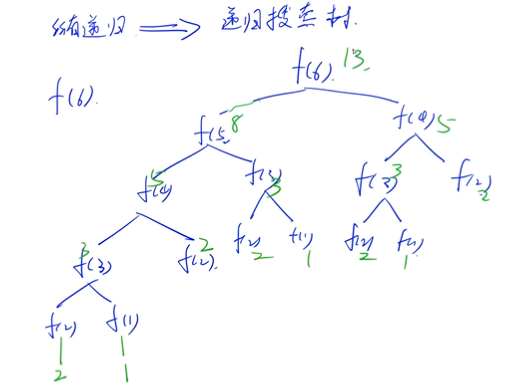 所有递归 ⟹ 递归搜索树.
f(6) 13
f(6).
f(5) 8
f(4) 5
f(4) 5
f(3) 3
f(3) 3
f(2) 2
f(3) 3
f(2) 2
f(2) 2
f(1) 1
f(2) 2
f(1) 1
f(2)
f(1)
2
1